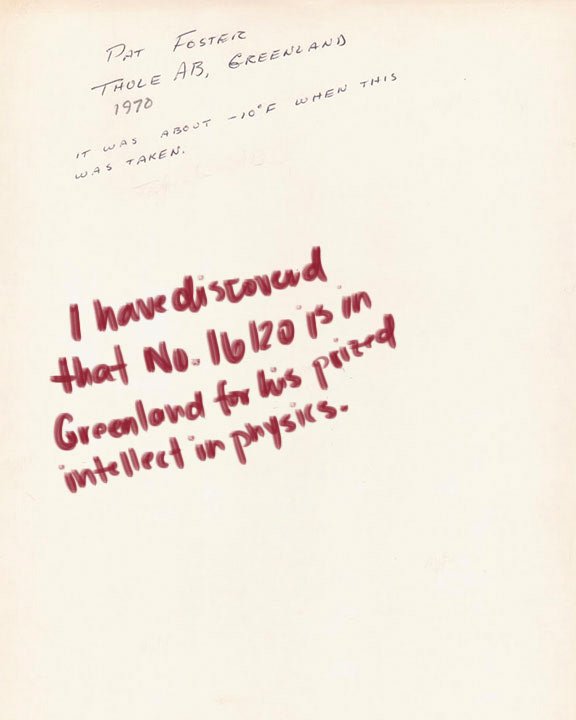 PAT FOSTER
THULE AB, GREENLAND
1970
IT WAS ABOUT -10°F WHEN THIS
WAS TAKEN.
I have discovered
that No. 16120 is in
Greenland for his prized
intellect in physics.